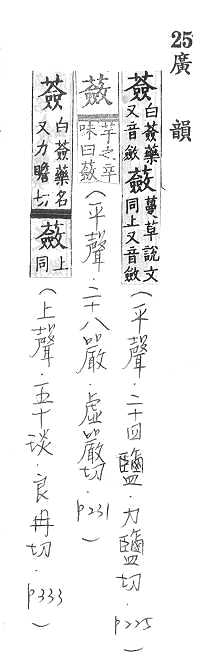 25廣韻
薟白薟藥又音斂蘞蔓草說文同上又音斂(平聲．二十四鹽．力鹽切．P225)
蘞芋之辛味曰蘞(平聲．二十八嚴．虛嚴切．P231)
薟白薟藥名又力瞻切蘞上同(上聲．五十琰．良冉切．P333)